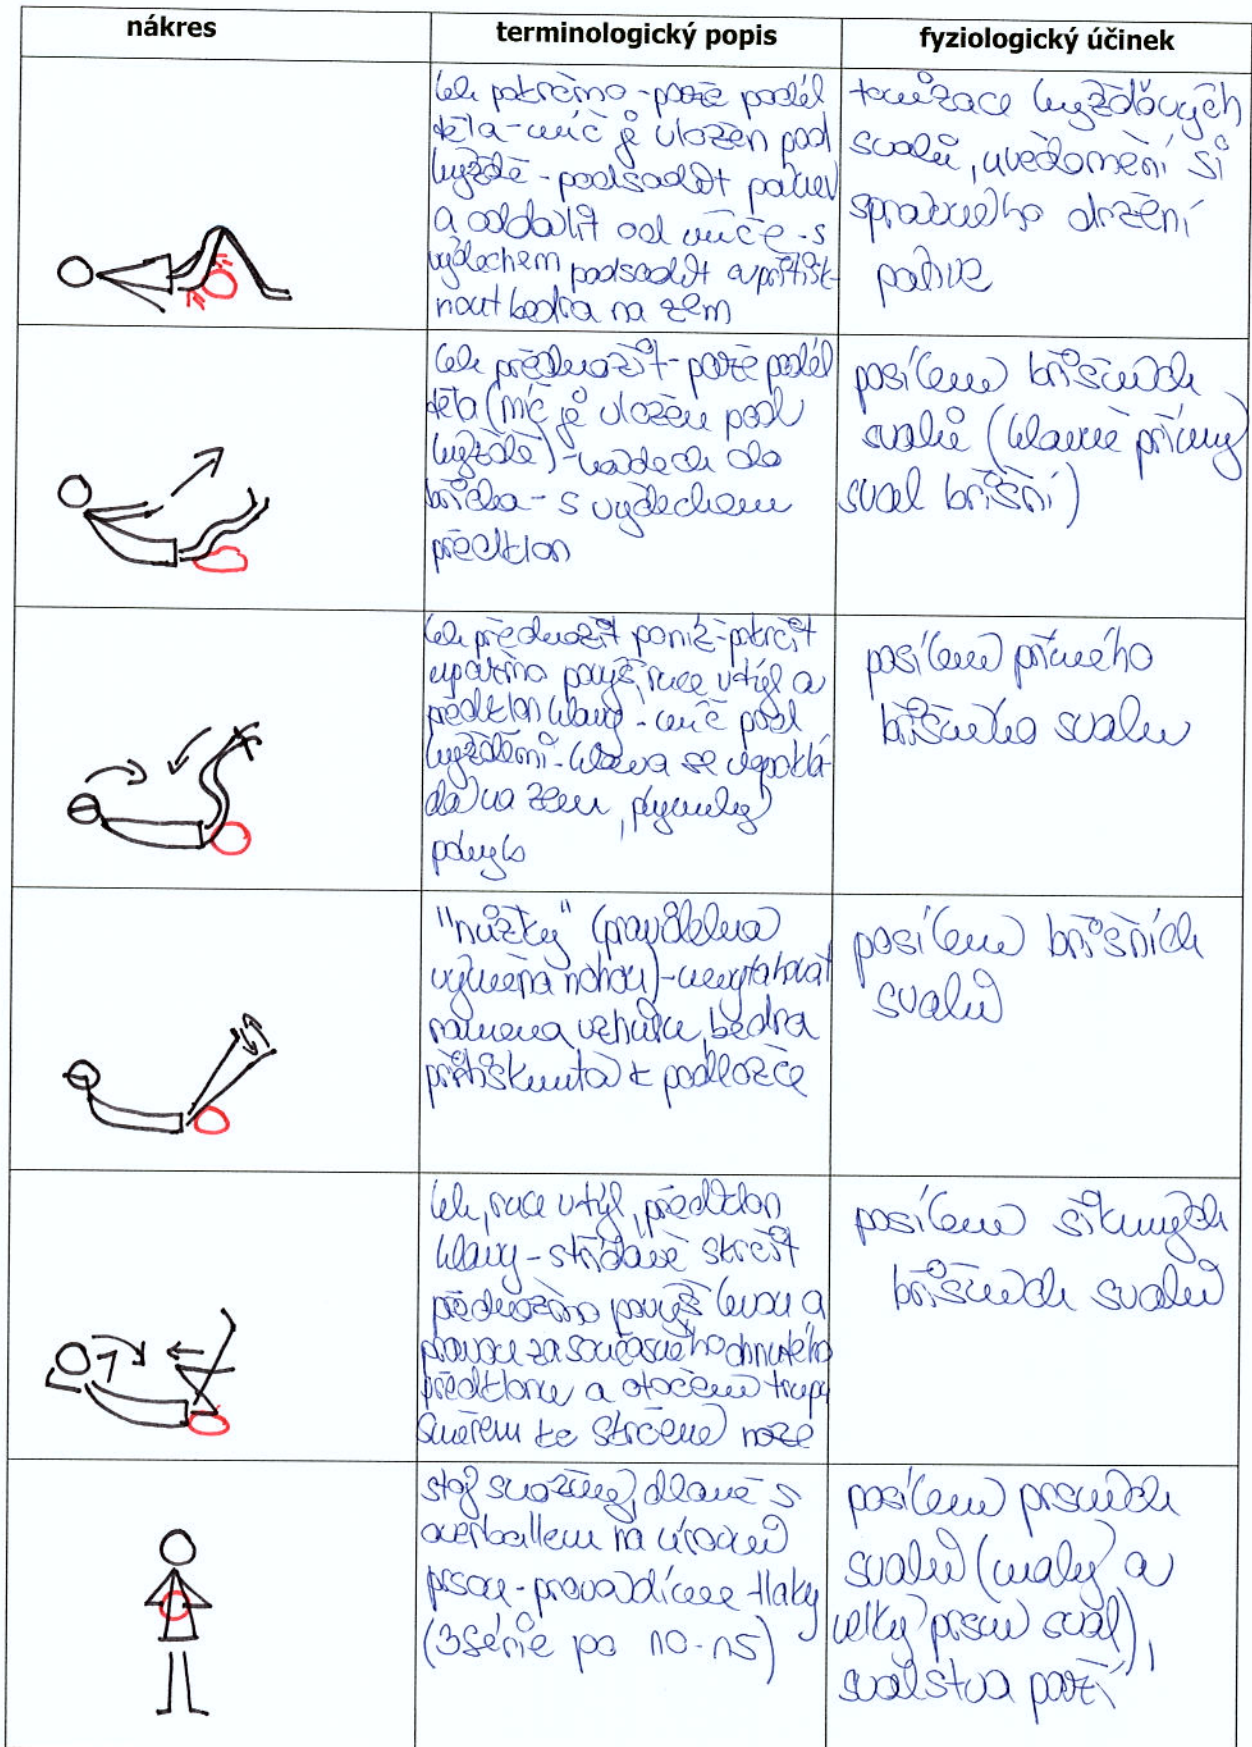 nákres
terminologický popis
fyziologický účinek
leh pokrčmo - paže podél
těla - míč je vložen pod
hýždě - podsadit pánev
a oddálit od míče - s
výdechem podsadit a přitisk-
nout bedra na zem
tonizace hýžďových
svalů, uvědomění si
správného držení
pánve
leh přednožit - paže podél
těla (míč je vložen pod
hýždě) - nádech do
břicha - s výdechem
předklon
posílení břišních
svalů (hlavně přímý
sval břišní)
leh přednožit poníž - pokrčit
upažmo povýš, ruce v týl a
předklon hlavy - míč pod
hýžděmi - hlava se nepoklá-
dá na zem, plynulý
pohyb
posílení přímého
břišního svalu
"nůžky" (pravidelná
výměna nohou) - nevytahovat
ramena vzhůru, bedra
přitisknutá k podložce
posílení břišních
svalů
leh, ruce v týl, předklon
hlavy - střídavě skrčit
přednožmo povýš levou a
pravou za současného ohnutého
předklonu a otočení trupu
směrem ke skrčené noze
posílení šikmých
břišních svalů
stoj snožný, dlaně s
overballem na úrovni
prsou - provádíme tlaky
(3 série po 10-15)
posílení prsních
svalů (malý a
velký prsní sval),
svalstva paží